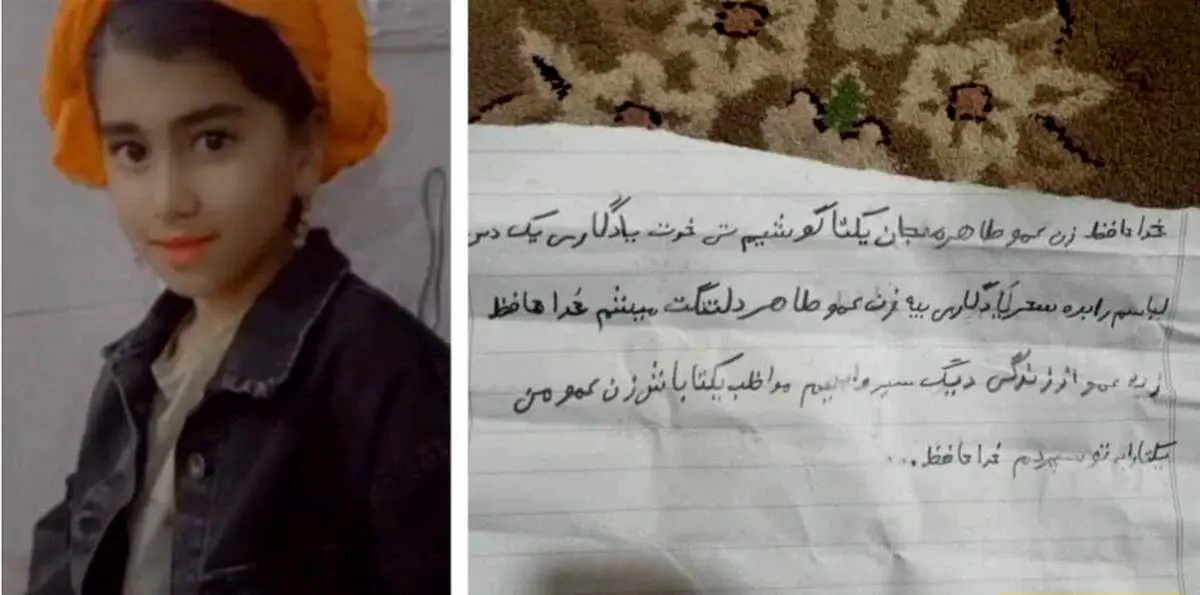 خداحافظ زن عمو طاهره جان یکتا گوشیم تی خوت یادگاری یک دس
لباسم رابده سحر یادگاری بیه زن عمو طاهر دلتنگت میشم خداحافظ
زن عمو از زندگی دیگ سیر وابیم مواظب یکتا باش زن عمو من
یکتارابه تو سپردم خداحافظ...